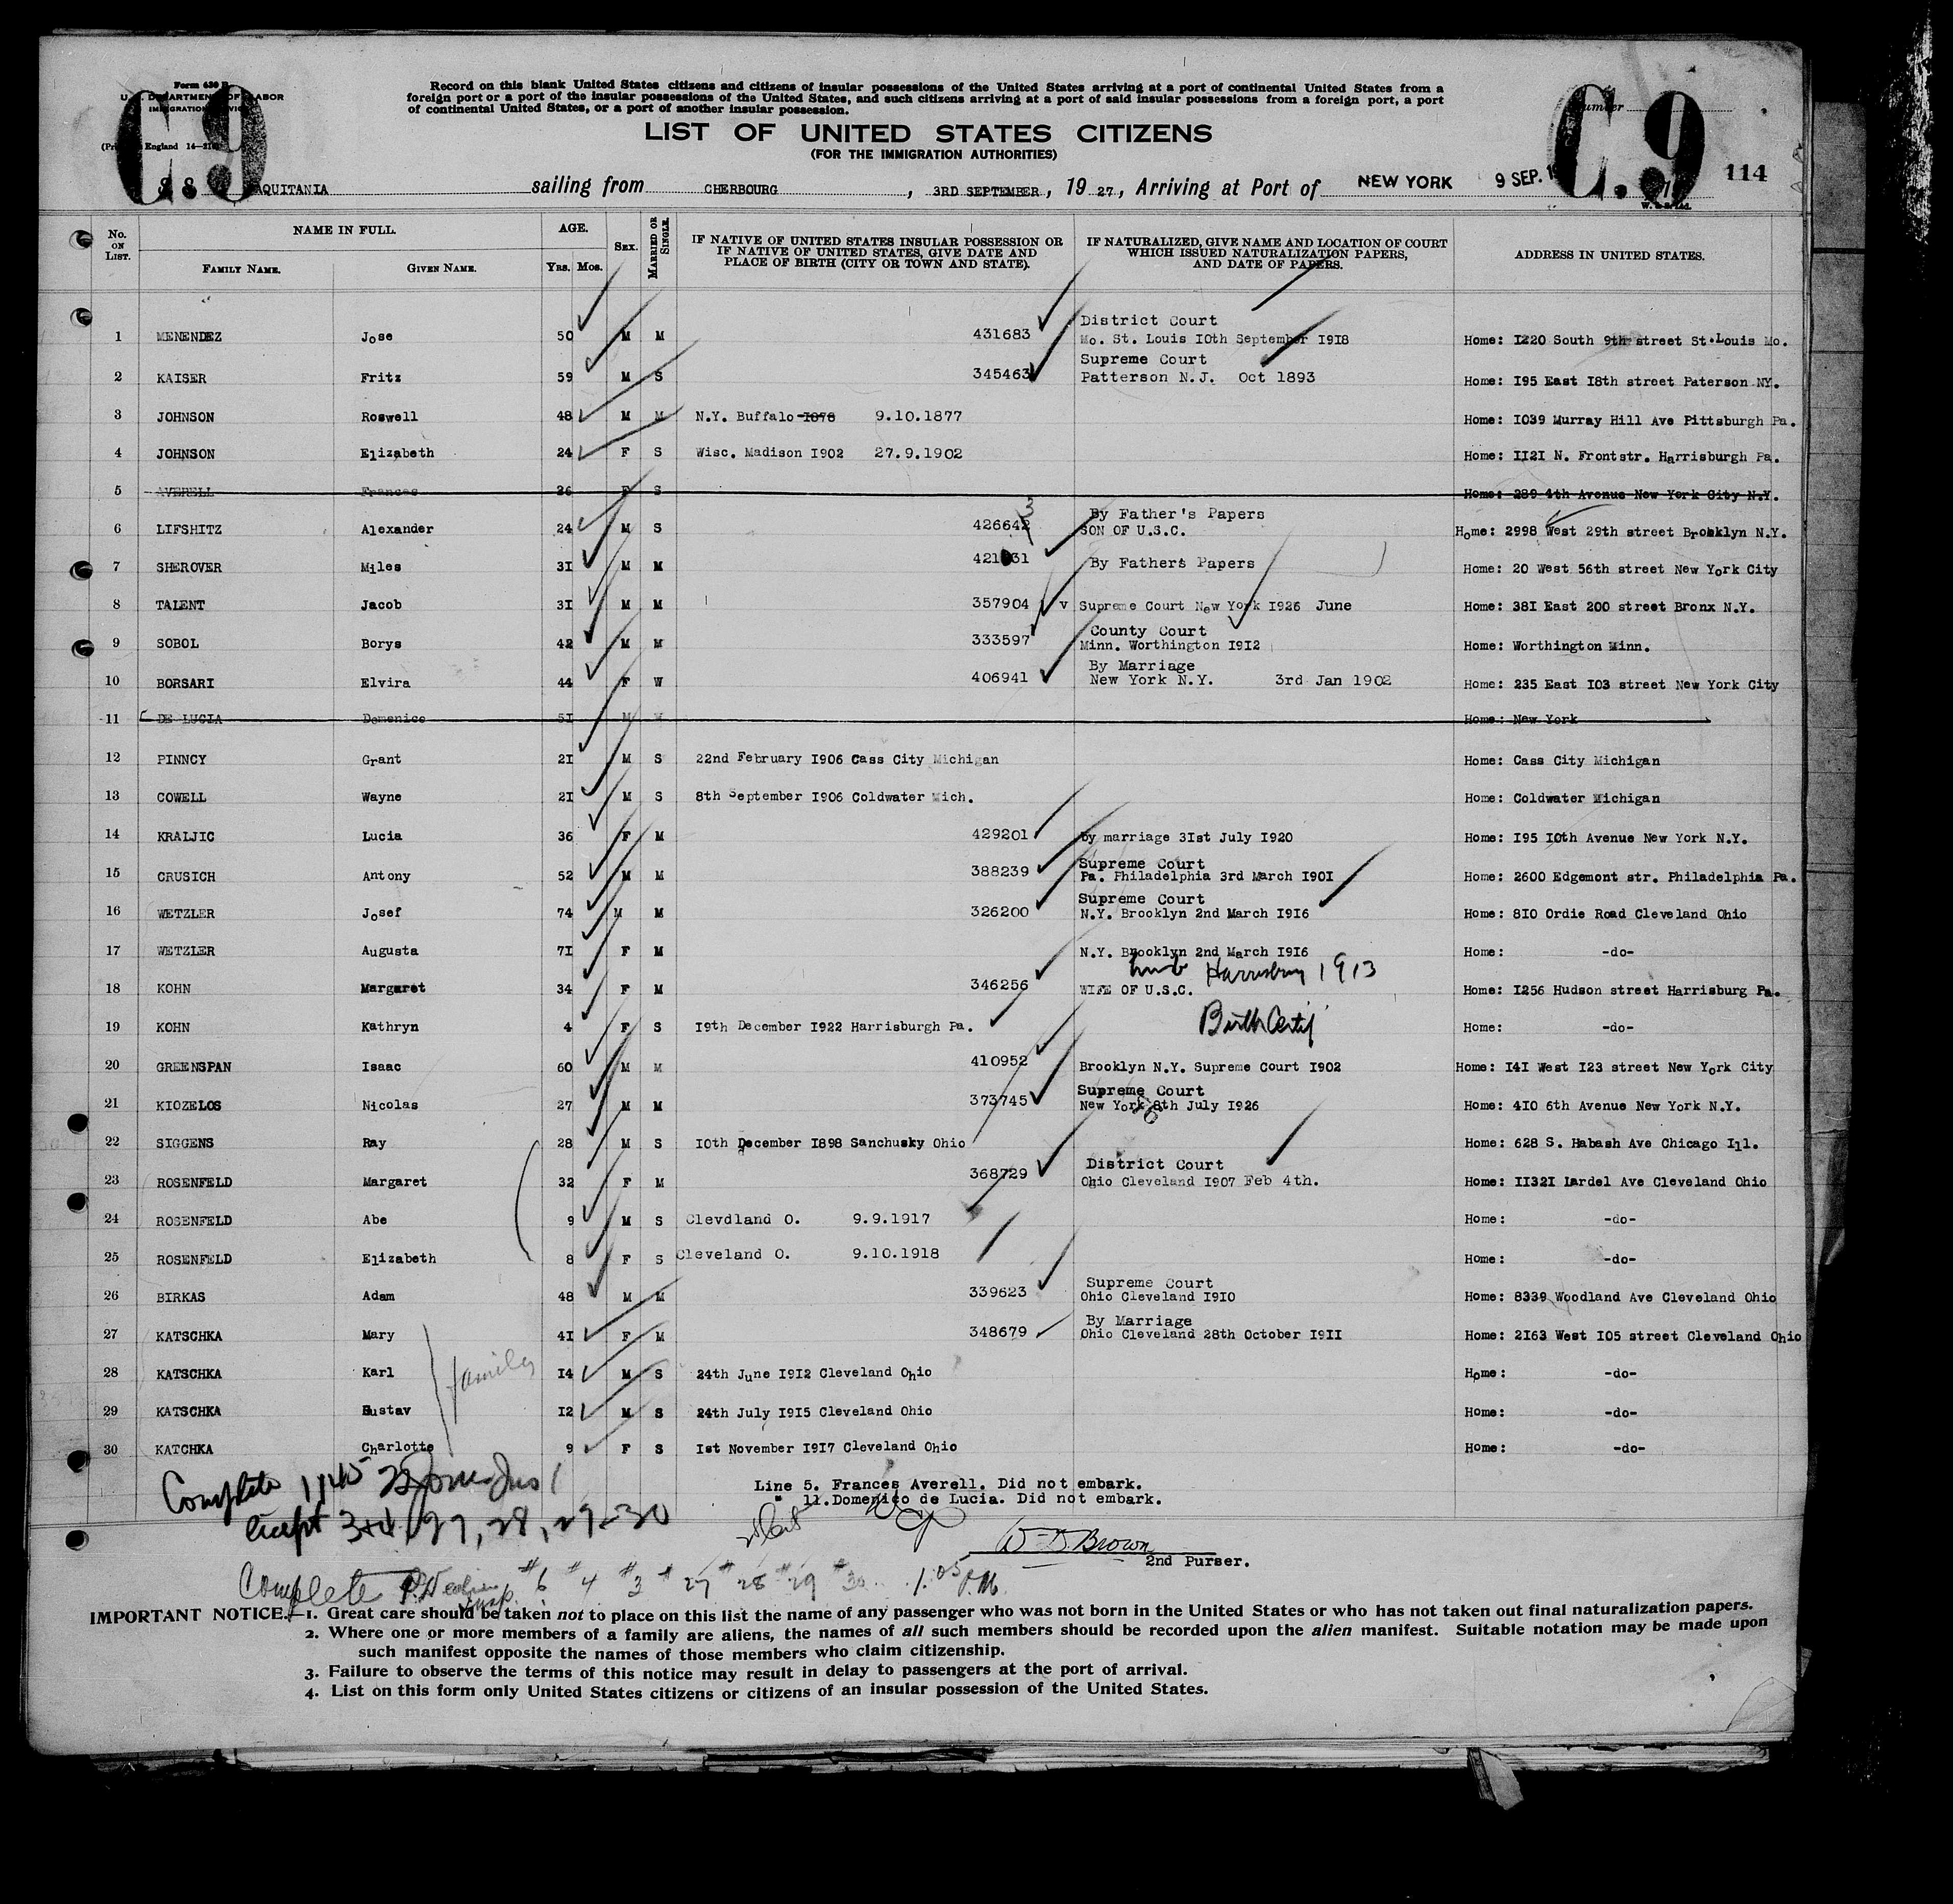 Form 630 B
U.S. DEPARTMENT OF LABOR
IMMIGRATION SERVICE
England 14-
C 9
Record on this blank United States citizens and citizens of insular possessions of the United States arriving at a port of continental United States from a
foreign port or a port of the insular possessions of the United States, and such citizens arriving at a port of said insular possessions from a foreign port, a port
of continental United States, or a port of another insular possession.
LIST OF UNITED STATES CITIZENS
(FOR THE IMMIGRATION AUTHORITIES)
Number
C.9
114
S S AQUITANIA sailing from CHERBOURG, 3RD SEPTEMBER, 1927, Arriving at Port of NEW YORK 9 SEP. 1
No. ON LIST. NAME IN FULL. AGE. SEX. MARRIED OR SINGLE. IF NATIVE OF UNITED STATES INSULAR POSSESSION OR IF NATIVE OF UNITED STATES, GIVE DATE AND PLACE OF BIRTH (CITY OR TOWN AND STATE). IF NATURALIZED, GIVE NAME AND LOCATION OF COURT WHICH ISSUED NATURALIZATION PAPERS, AND DATE OF PAPERS. ADDRESS IN UNITED STATES.
FAMILY NAME. GIVEN NAME. Yrs. Mos.
District Court
1 MENENDEZ Jose 50 M M 431683 Mo. St. Louis I0th September I9I8 Home: I220 South 9th street St.Louis Mo.
Supreme Court
2 KAISER Fritz 59 M S 345463 Patterson N.J. Oct 1893 Home: I95 East I8th street Paterson NY.
3 JOHNSON Roswell 48 M M N.Y. Buffalo I878 9.10.1877 Home: I039 Murray Hill Ave Pittsburgh Pa.
4 JOHNSON Elizabeth 24 F S Wisc. Madison I902 27.9.1902 Home: II2I N. Frontstr. Harrisburgh Pa.
5 AVERELL Frances 26 F S Home: 289 4th Avenue New York City N.Y.
3
By Father's Papers
6 LIFSHITZ Alexander 24 M S 426642 SON OF U.S.C. Home: 2998 West 29th street Brooklyn N.Y.
7 SHEROVER Miles 3I M M By Fathers Papers Home: 20 West 56th street New York City
8 TALENT Jacob 3I M M 357904 v Supreme Court New York I926 June Home: 38I East 200 street Bronx N.Y.
County Court
9 SOBOL Borys 42 M M 333597 Minn. Worthington I9I2 Home: Worthington Minn.
By Marriage
10 BORSARI Elvira 44 F W 406941 New York N.Y. 3rd Jan 1902 Home: 235 East I03 street New York City
11 DE LUCIA Domenico 5I M M Home: New York
12 PINNCY Grant 2I M S 22nd February I906 Cass City Michigan Home: Cass City Michigan
13 COWELL Wayne 2I M S 8th September I906 Coldwater Mich. Home: Coldwater Michigan
14 KRALJIC Lucia 36 F M 429201 by marriage 3Ist July I920 Home: I95 I0th Avenue New York N.Y.
Supreme Court
15 CRUSICH Antony 52 M M 388239 Pa. Philadelphia 3rd March I90I Home: 2600 Edgemont str. Philadelphia Pa.
Supreme Court
16 WETZLER Josef 74 M M 326200 N.Y. Brooklyn 2nd March I9I6 Home: 8I0 Ordie Road Cleveland Ohio
17 WETZLER Augusta 7I F M N.Y. Brooklyn 2nd March I9I6 Home: -do-
Harrisburg 1913
18 KOHN Margaret 34 F M 346256 WIFE OF U.S.C. Home: I256 Hudson street Harrisburg Pa.
19 KOHN Kathryn 4 F S I9th December I922 Harrisburgh Pa. Birth Certif Home: -do-
20 GREENSPAN Isaac 60 M M 410952 Brooklyn N.Y. Supreme Court I902 Home: I4I West I23 street New York City
Supreme Court
21 KIOZELOS Nicolas 27 M M 373745 New York 8th July I926 Home: 4I0 6th Avenue New York N.Y.
22 SIGGENS Ray 28 M S I0th December I898 Sanchusky Ohio Home: 628 S. Habash Ave Chicago Ill.
District Court
23 ROSENFELD Margaret 32 F M 368729 Ohio Cleveland I907 Feb 4th. Home: II32I Lardel Ave Cleveland Ohio
24 ROSENFELD Abe 9 M S Clevdland O. 9.9.1917 Home: -do-
25 ROSENFELD Elizabeth 8 F S Cleveland O. 9.10.1918 Home: -do-
Supreme Court
26 BIRKAS Adam 48 M M 339623 Ohio Cleveland I9I0 Home: 8339 Woodland Ave Cleveland Ohio
By Marriage
27 KATSCHKA Mary 4I F M 348679 Ohio Cleveland 28th October I9II Home: 2I63 West I05 street Cleveland Ohio
28 KATSCHKA Karl I4 M S 24th June I9I2 Cleveland Ohio Home: -do-
family
29 KATSCHKA Gustav I2 M S 24th July I9I5 Cleveland Ohio Home: -do-
30 KATCHKA Charlotte 9 F S Ist November I9I7 Cleveland Ohio Home: -do-
Complete 1145
Line 5. Frances Averell. Did not embark.
" 11.Domenico de Lucia. Did not embark.
except 3+4, 27, 28, 29-30
W D. Brown
2nd Purser.
Complete #6 #4 #3 #27 #28 #29 #30 1.05 P.M.
IMPORTANT NOTICE.—1. Great care should be taken not to place on this list the name of any passenger who was not born in the United States or who has not taken out final naturalization papers.
2. Where one or more members of a family are aliens, the names of all such members should be recorded upon the alien manifest. Suitable notation may be made upon
such manifest opposite the names of those members who claim citizenship.
3. Failure to observe the terms of this notice may result in delay to passengers at the port of arrival.
4. List on this form only United States citizens or citizens of an insular possession of the United States.